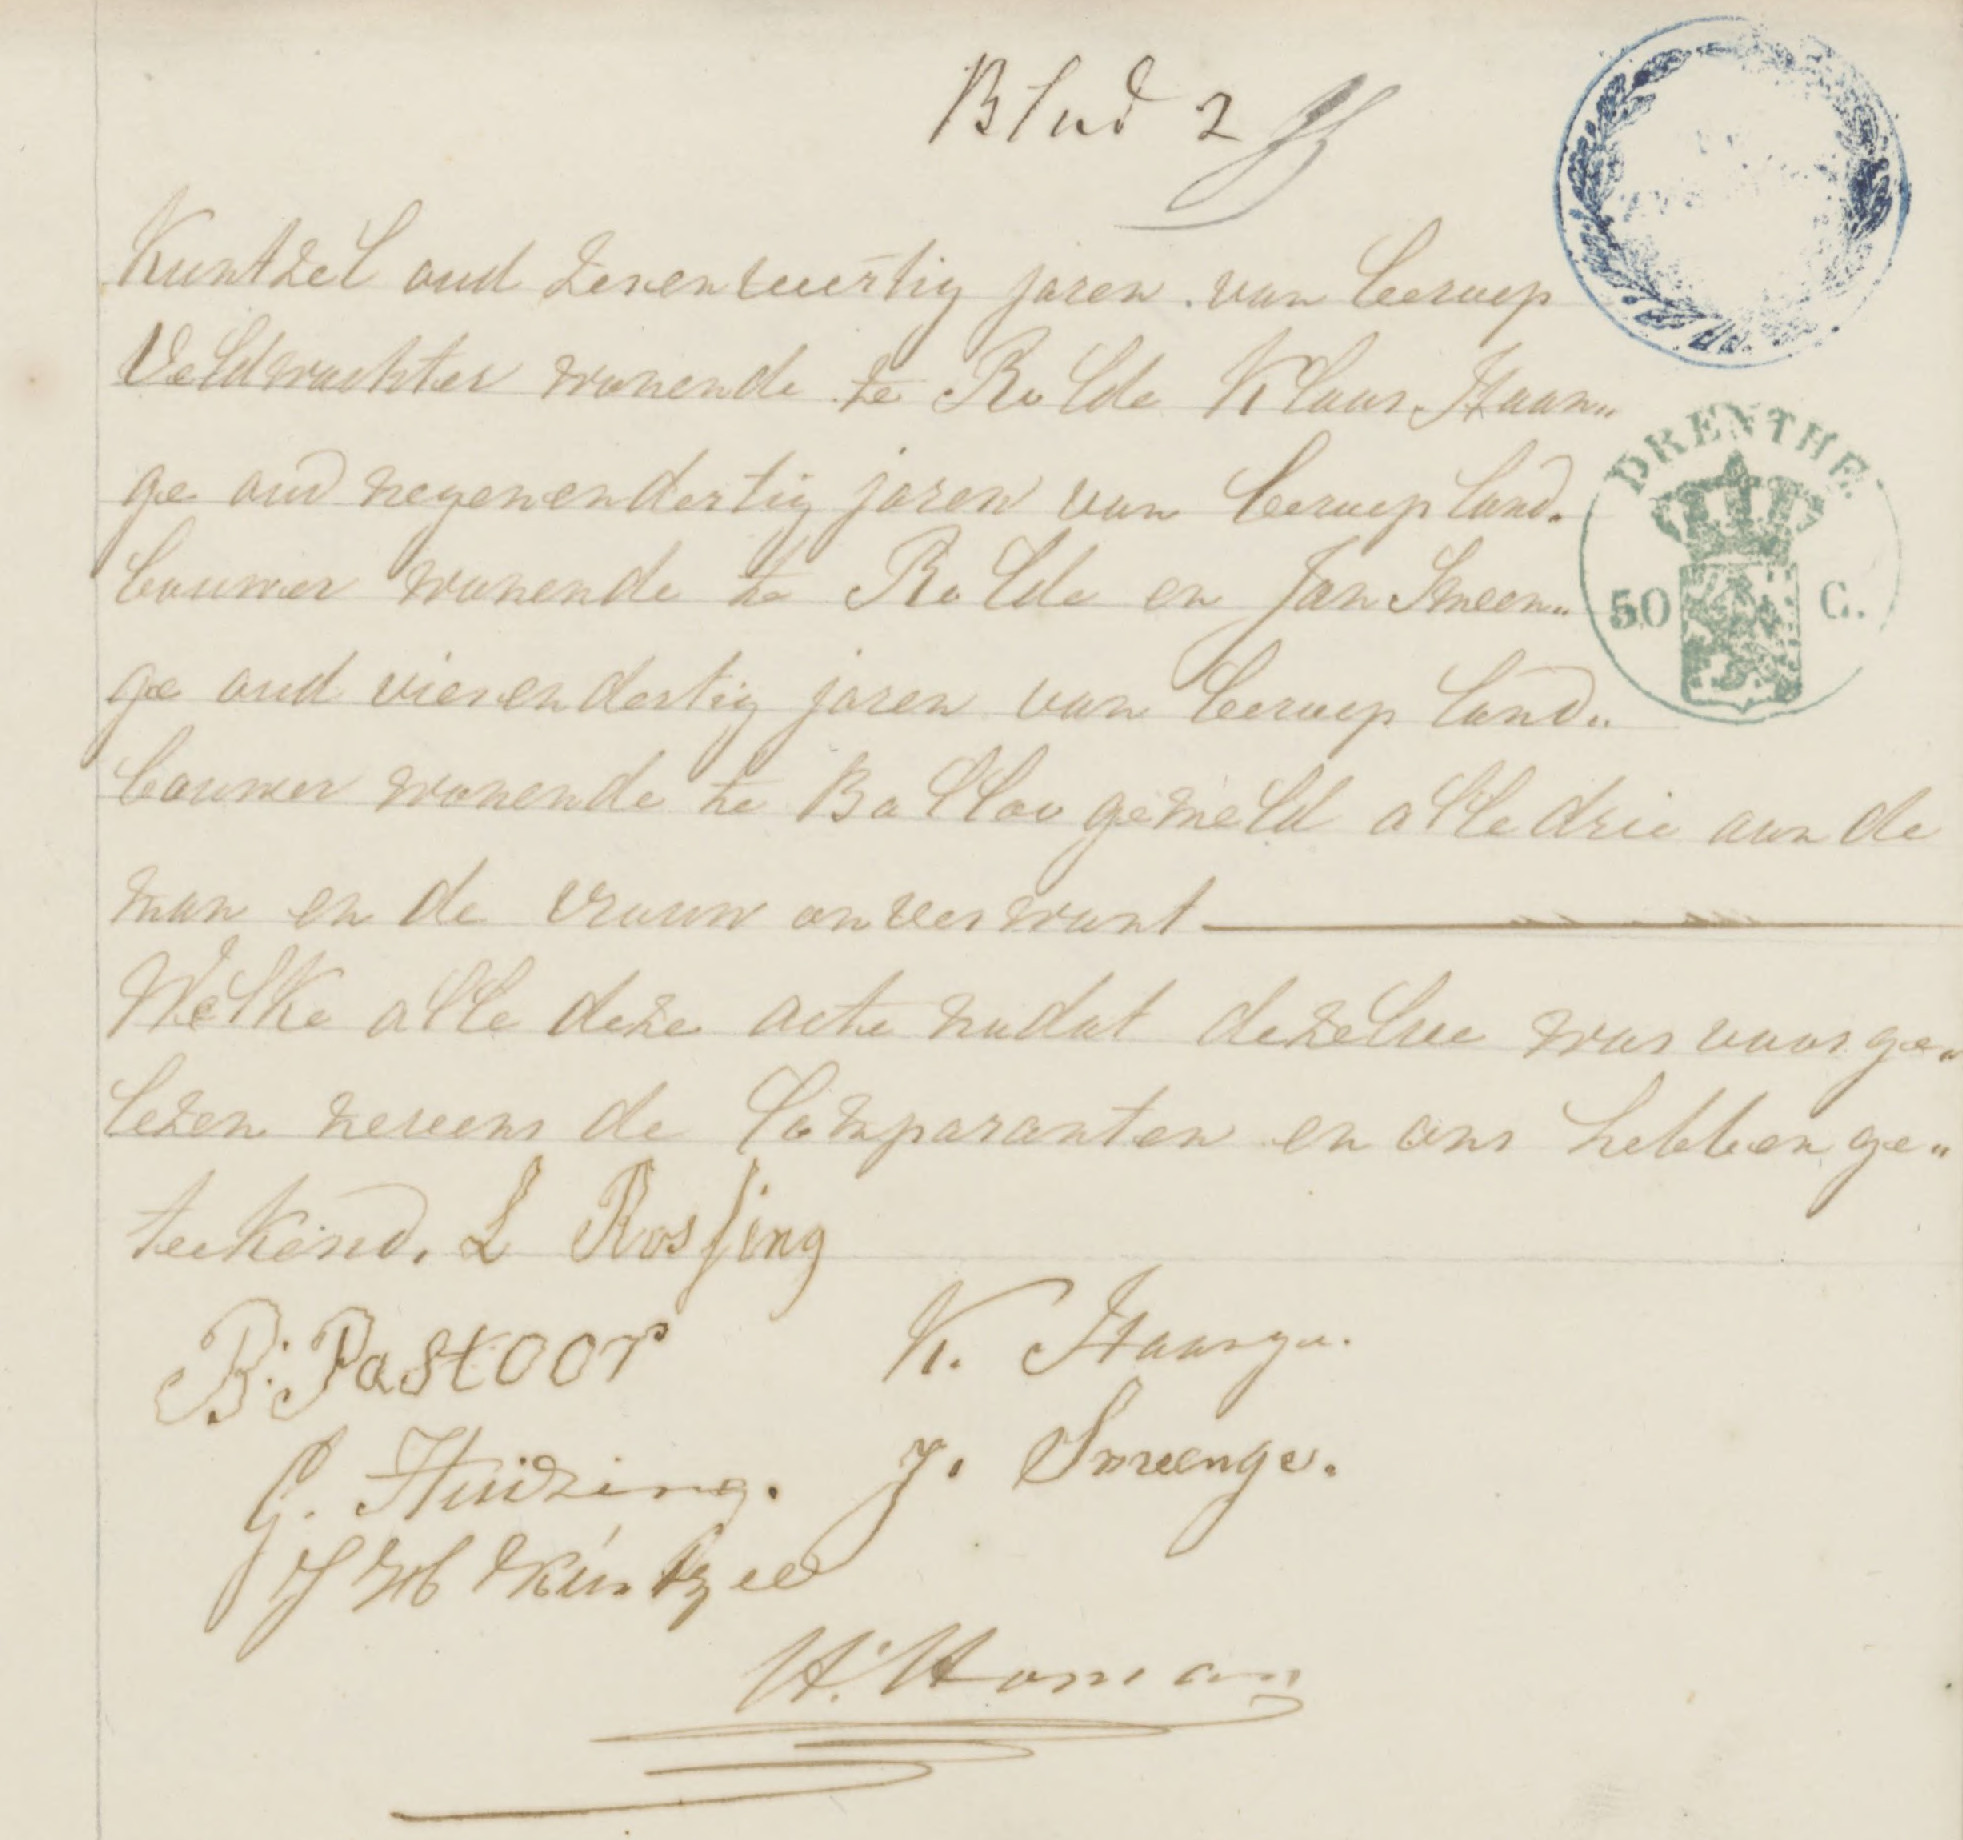 Blad 2
Kuntzel oud zevenveertig jaren van beroep
Veldwachter wonende te Rolde Klaas Haan„
ge oud negenendertig jaren van beroep land„
bouwer wonende te Rolde en Jan Smeen„
ge oud vierendertig jaren van beroep land„
bouwer wonende te Balloo gemeld alle drie aan de
man en de vrouw onverwant
Welke alle deze acte nadat dezelve was voorge„
lezen neveens de Comparanten en ons hebben ge„
teekend. L Rossing
B. Pastoor K. Haange.
G. Huizing. J. Smeenge.
Kúntzel
H. Homan
DRENTHE.
50 C.